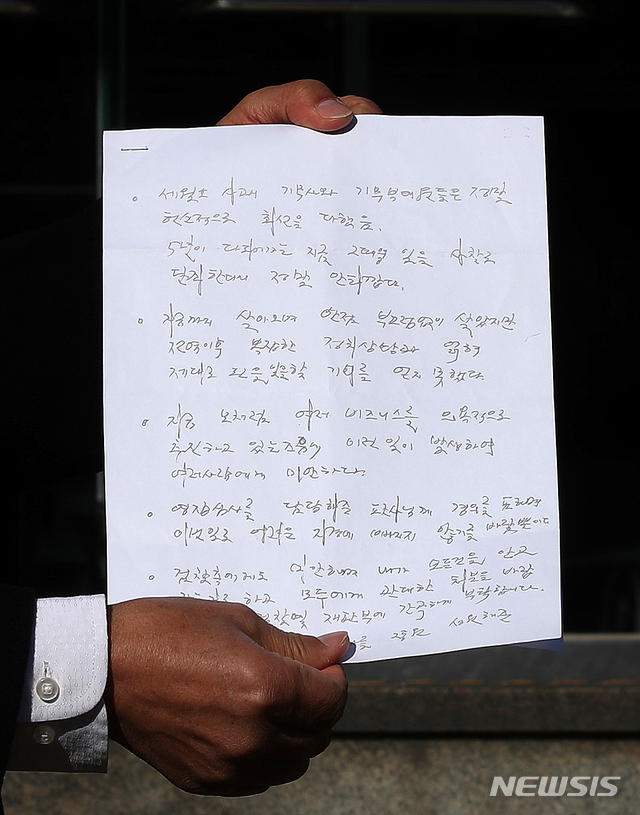 ◦ 세월호 사고시 기무사와 기무부대원들은 정말
헌신적으로 최선을 다했음.
5년이 다 되어가는 지금 그때의 일을 사찰로
단죄한다니 정말 안타깝다.
◦ 지금까지 살아오며 한점 부끄럼없이 살았지만
전역이후 복잡한 정치상황과 얽혀
제대로 된 일을 할 기회를 얻지 못했다.
◦ 지금 모처럼 여러 비즈니스를 의욕적으로
추진하고 있는 즈음에 이런 일이 발생하여
여러사람에게 미안하다.
◦ 영장심사를 담당해준 판사님께 경의를 표하며
이번일로 어려운 지경에 빠지지 않기를 바랄뿐이다
◦ 검찰측에게도 미안하며 내가 모든것을 안고
하고 모두에게 관대한 처분을 바랍니다.
재판부에 간곡하게 부탁합니다.
성원해준
NEWSIS